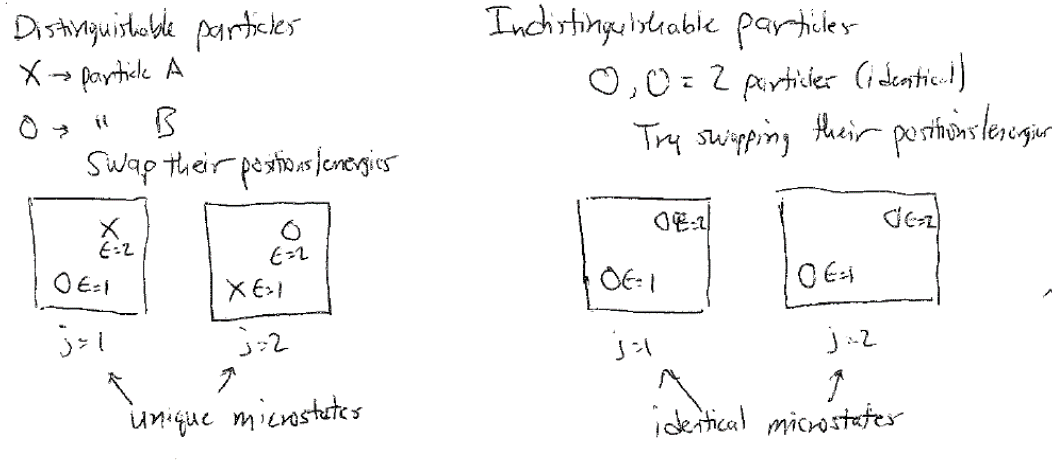 Distinguishable particles
X → particle A
O → " B
Swap their positions/energies
X
ε=2
O ε=1
j=1
O
ε=2
X ε=1
j=2
unique microstates
Indistinguishable particles
O, O = 2 particles (identical)
Try swapping their positions/energies
O ε=2
O ε=1
j=1
O ε=2
O ε=1
j=2
identical microstates